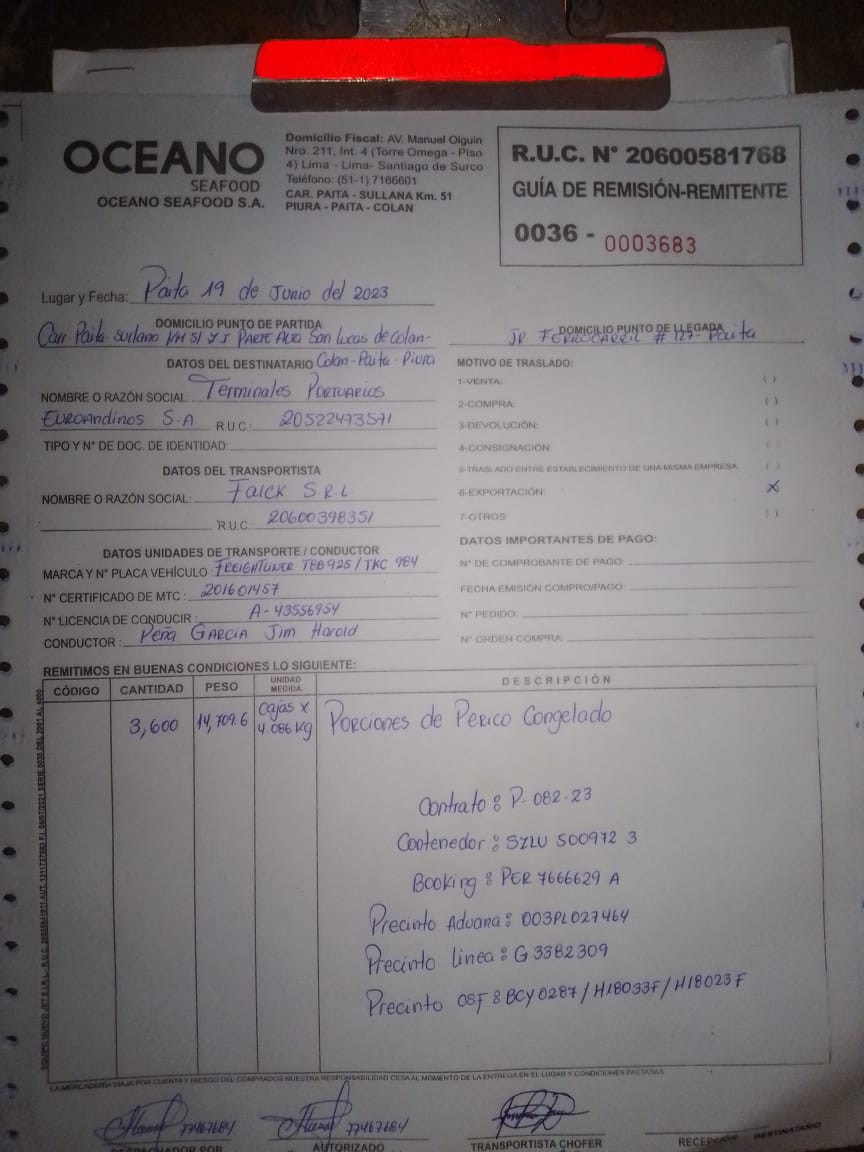 OCEANO
SEAFOOD
OCEANO SEAFOOD S.A.
Domicilio Fiscal: AV. Manuel Olguin
Nro. 211, Int. 4 (Torre Omega - Piso
4) Lima - Lima- Santiago de Surco
Teléfono: (51-1) 7166601
CAR. PAITA - SULLANA Km. 51
PIURA - PAITA - COLAN
R.U.C. N° 20600581768
GUÍA DE REMISIÓN-REMITENTE
0036 - 0003683
Lugar y Fecha: Paita 19 de Junio del 2023
DOMICILIO PUNTO DE PARTIDA
Carr Paita-Sullana KM 51 Y I PARTE ALTA San Lucas de Colan-
Colan-Paita-Piura
DOMICILIO PUNTO DE LLEGADA
JR FERROCARRIL # 127- Paita
DATOS DEL DESTINATARIO
NOMBRE O RAZÓN SOCIAL: Terminales Portuarios
EUROANDINOS S.A R.U.C.: 20522473571
TIPO Y N° DE DOC. DE IDENTIDAD:
DATOS DEL TRANSPORTISTA
NOMBRE O RAZÓN SOCIAL: Falck S.R.L.
R.U.C.: 20600398351
DATOS UNIDADES DE TRANSPORTE / CONDUCTOR
MARCA Y N° PLACA VEHÍCULO FREIGHTLINER T8B925/TKC 984
N° CERTIFICADO DE MTC : 201601457
N° LICENCIA DE CONDUCIR : A-43556954
CONDUCTOR : Peña GARCIA Jim Harold
MOTIVO DE TRASLADO:
1-VENTA: ( )
2-COMPRA: ( )
3-DEVOLUCIÓN: ( )
4-CONSIGNACIÓN: ( )
5-TRASLADO ENTRE ESTABLECIMIENTO DE UNA MISMA EMPRESA ( )
6-EXPORTACIÓN: X
7-OTROS: ( )
DATOS IMPORTANTES DE PAGO:
N° DE COMPROBANTE DE PAGO:
FECHA EMISIÓN COMPRO/PAGO:
N° PEDIDO:
N° ORDEN COMPRA:
REMITIMOS EN BUENAS CONDICIONES LO SIGUIENTE:
CÓDIGO CANTIDAD PESO UNIDAD MEDIDA. DESCRIPCIÓN
3,600 14,709.6 Cajas x 4.086 Kg Porciones de Perico Congelado
Contrato: P-082-23
Contenedor: SZLU 500972 3
Booking: PER 7666629 A
Precinto Aduana: 003PL027464
Precinto linea: G 3382309
Precinto OSF: BCY0287/H18033F/H18023F
LA MERCADERÍA VIAJA POR CUENTA Y RIESGO DEL COMPRADOS NUESTRA RESPONSABILIDAD CESA AL MOMENTO DE LA ENTREGA EN EL LUGAR Y CONDICIONES PACTADAS
77467684 77467684
DESPACHADOR POR AUTORIZADO TRANSPORTISTA CHOFER RECEPCIÓN DESTINATARIO